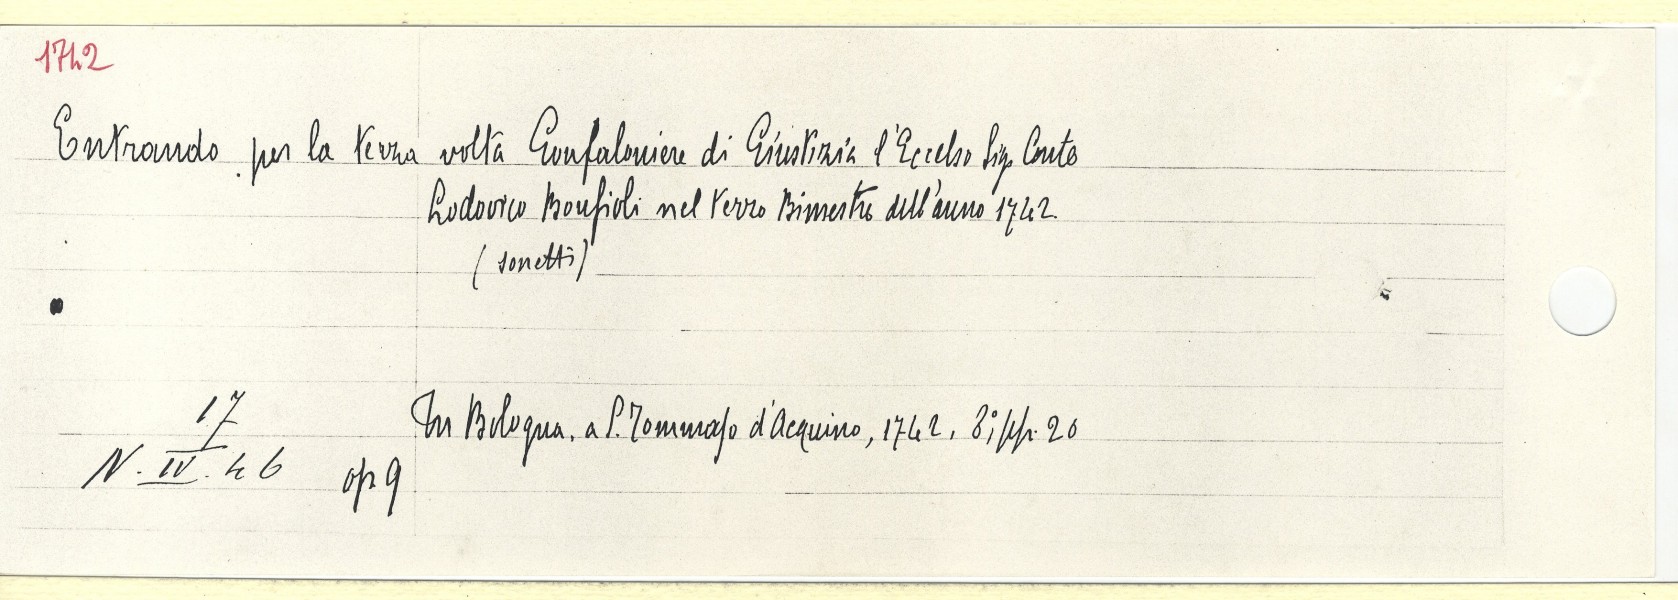 1742
Entrando per la terza volta Gonfaloniere di Giustizia l'Eccelso Sig. Conte
Lodovico Bonfioli nel terzo Bimestre dell'anno 1742.
(sonetti)
In Bologna, a S. Tommaso d'Acquino, 1742, 8°, pp. 20
17
N. IV. 46 op 9